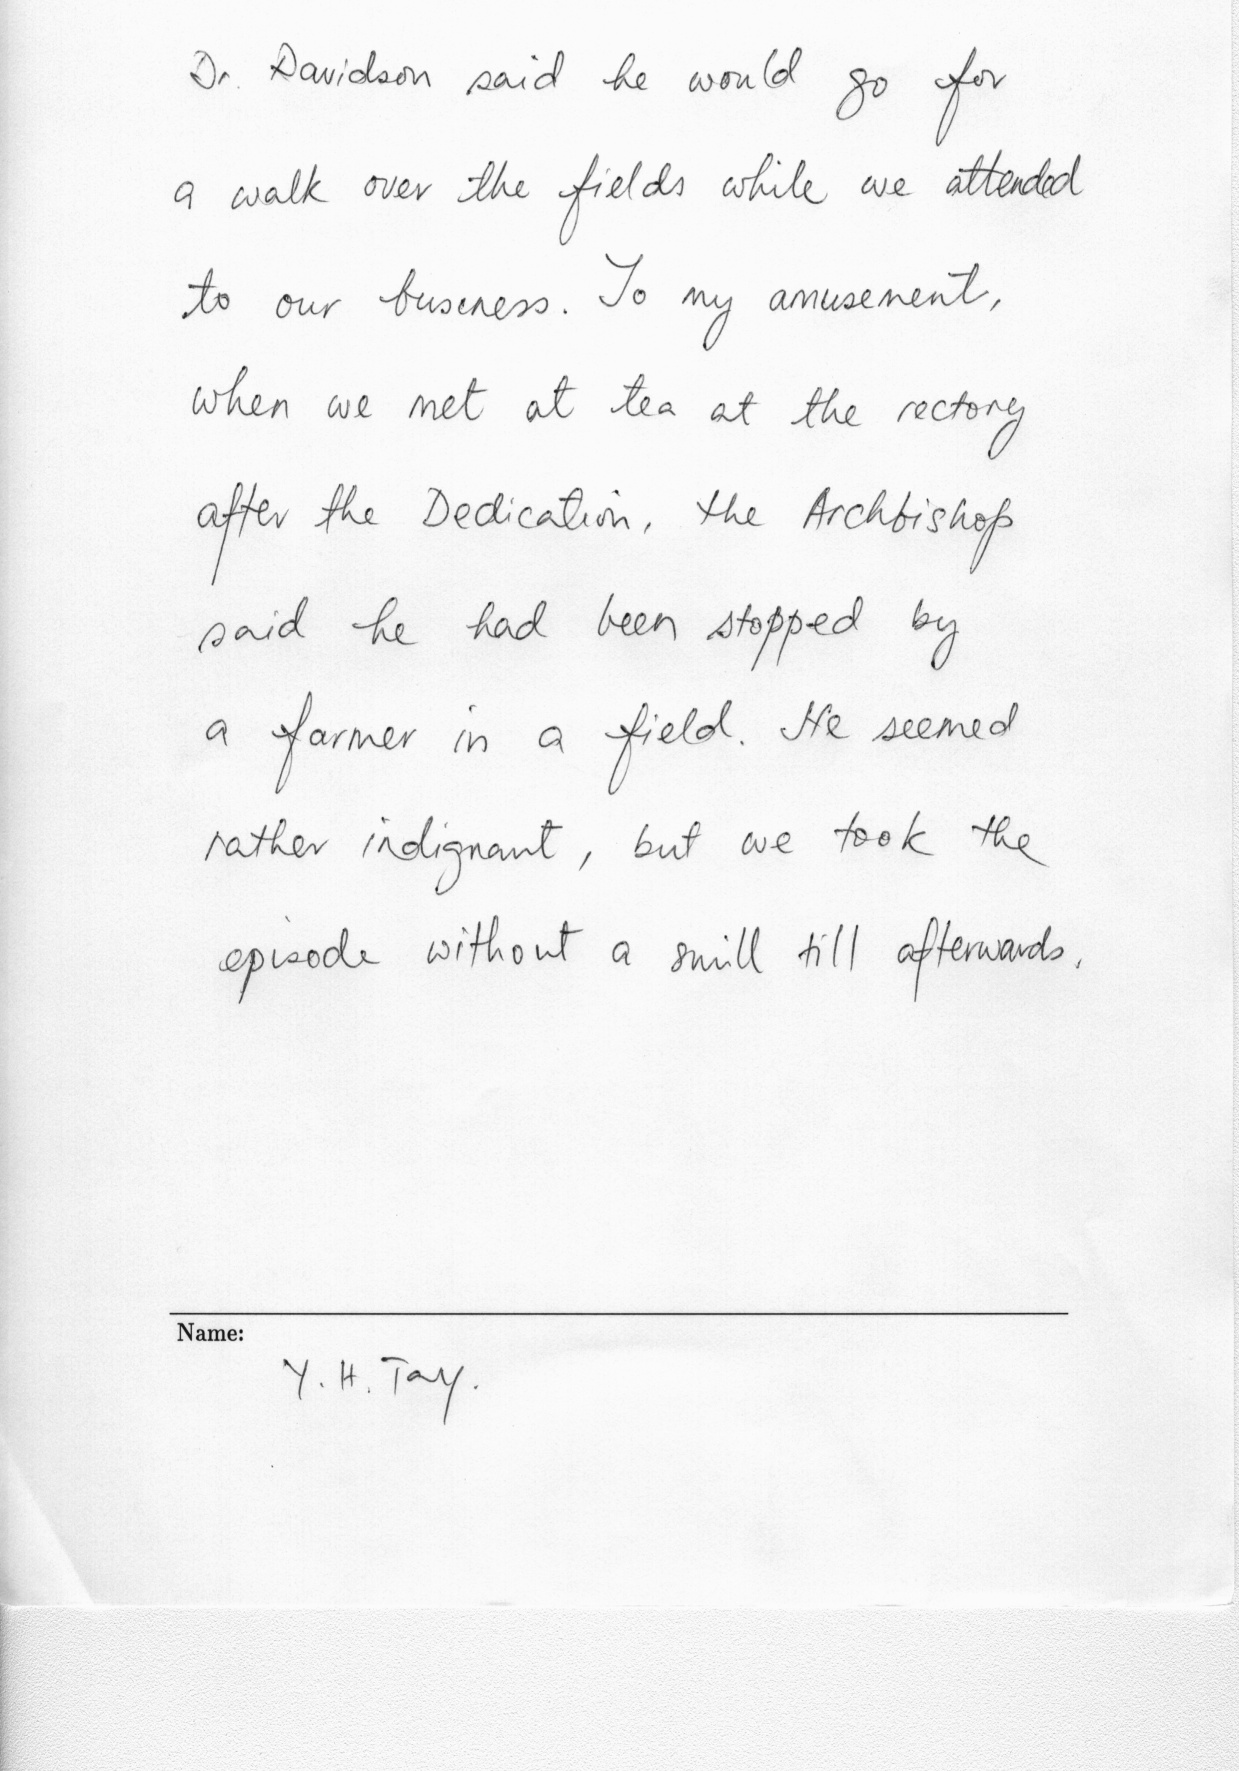 Dr. Davidson said he would go for
a walk over the fields while we attended
to our business. To my amusement,
when we met at tea at the rectory
after the Dedication, the Archbishop
said he had been stopped by
a farmer in a field. He seemed
rather indignant, but we took the
episode without a smill till afterwards.
Name:
Y. H. Tay.